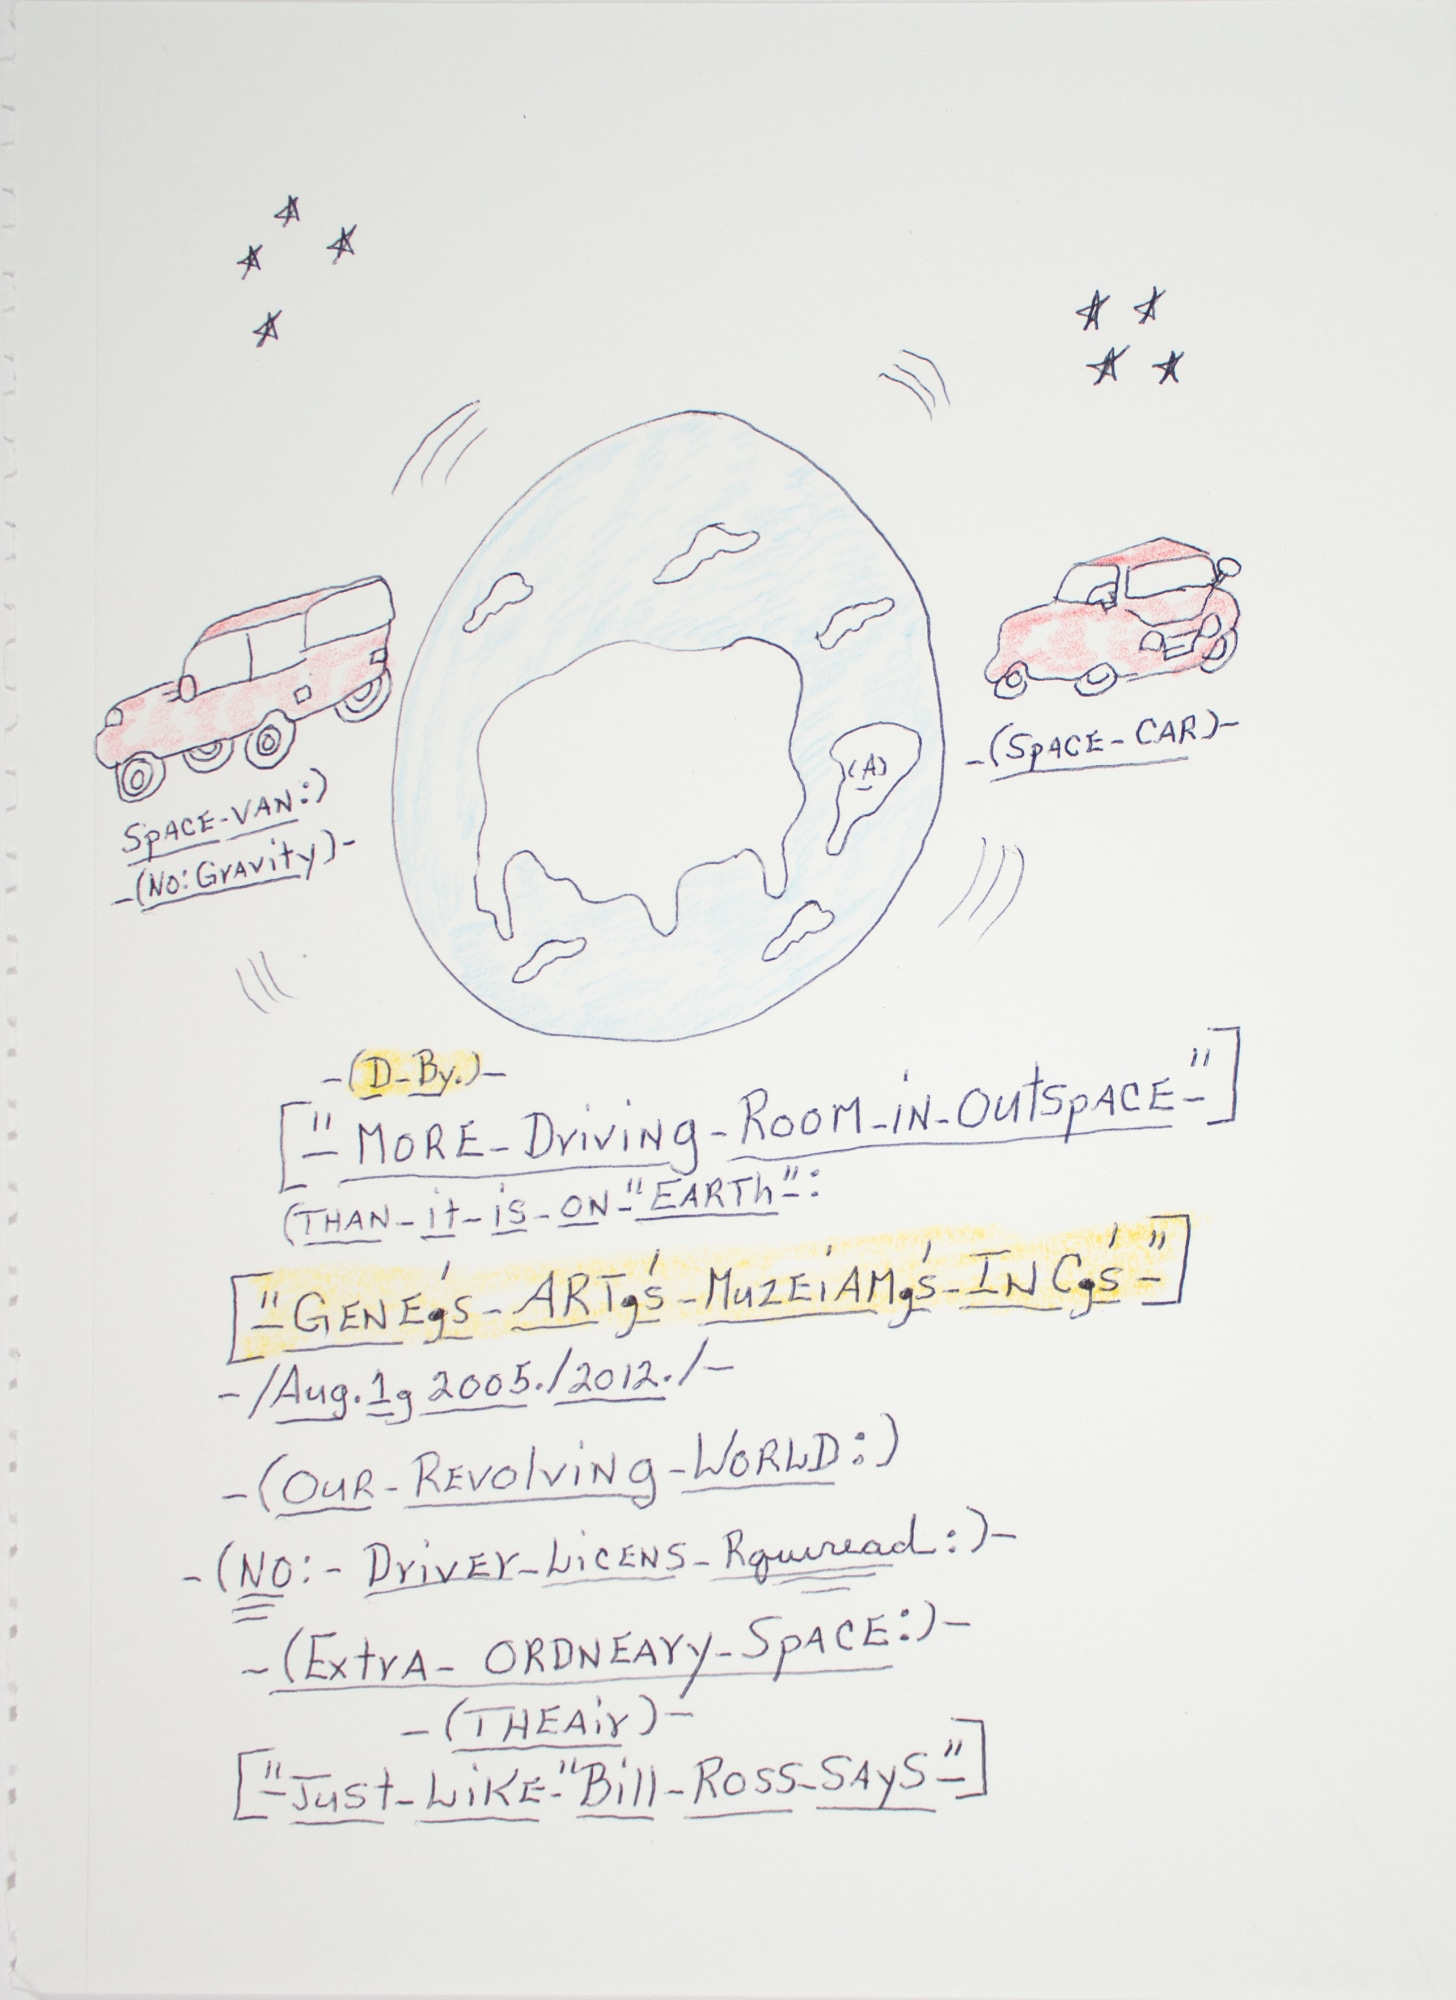 (A)
-(SpACE-CAR)-
SpACE-VAN:)
-(No:GrAvity)-
-(D-By.)-
["MORE-Driving-ROOM-iN-OutSpACE-"]
(THAN-it-iS-ON-"EARTh":
["GENEg's-ARTg's-MuZEiAMg's-INCg's-"]
-/Aug.1g 2005./2012./-
-(OUR-REVOlviNg-WORLD:)
-(NO:-DrivEr-LiCENS-Rquiread:)-
-(ExtrA-ORDNEAry-SpACE:)-
-(THEAir)-
["JuSt-LiKE-"Bill-ROSS-SAyS-"]